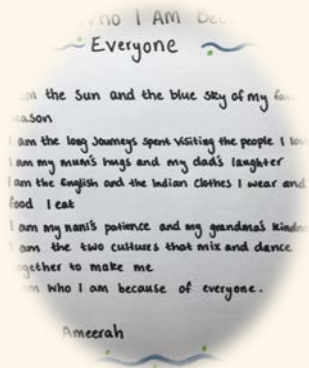 Who I Am Bec
Everyone
am the Sun and the blue sky of my fav
eason
I am the long Journeys spent visiting the people I lov
I am my mum's hugs and my dad's laughter
I am the English and the Indian clothes I wear and
food I eat
I am my nani's patience and my grandma's kindn
I am the two cultures that mix and dance
together to make me
am who I am because of everyone.
Ameerah